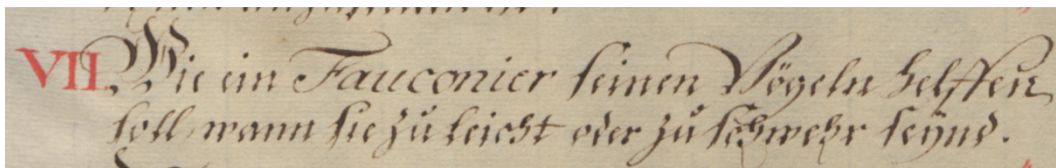 VII. Wie ein Fauconier seinen Vögeln helffen
soll, wann sie zu leicht oder zu schwehr seynd.